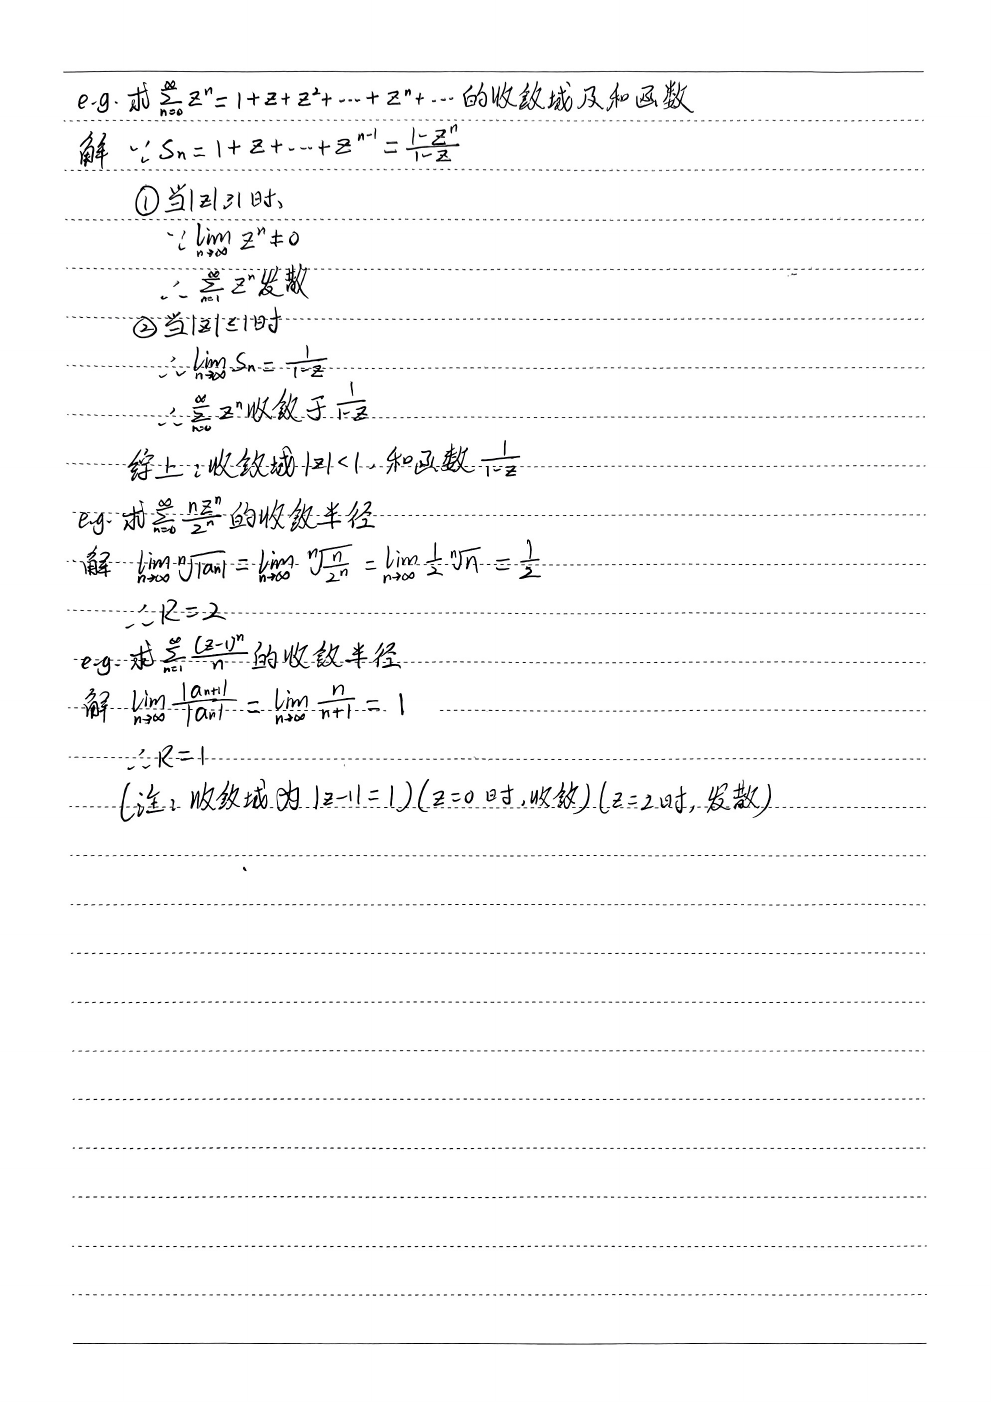 e.g. 求 $\sum_{n=0}^{\infty} z^n = 1+z+z^2+\cdots+z^n+\cdots$ 的收敛域及和函数
解 ∵ $S_n = 1+z+\cdots+z^{n-1} = \frac{1-z^n}{1-z}$
① 当 $|z| \geq 1$ 时、
∵ $\lim_{n\to\infty} z^n \neq 0$
∴ $\sum_{n=1}^{\infty} z^n$ 发散
② 当 $|z| \leq 1$ 时
∴ $\lim_{n\to\infty} S_n = \frac{1}{1-z}$
∴ $\sum_{n=0}^{\infty} z^n$ 收敛于 $\frac{1}{1-z}$
综上:收敛域 $|z|<1$,和函数 $\frac{1}{1-z}$
e.g. 求 $\sum_{n=0}^{\infty} \frac{nz^n}{2^n}$ 的收敛半径
解 $\lim_{n\to\infty} \sqrt[n]{|a_n|} = \lim_{n\to\infty} \sqrt[n]{\frac{n}{2^n}} = \lim_{n\to\infty} \frac{1}{2} \sqrt[n]{n} = \frac{1}{2}$
∴ R=2
e.g. 求 $\sum_{n=1}^{\infty} \frac{(z-1)^n}{n}$ 的收敛半径
解 $\lim_{n\to\infty} \frac{|a_{n+1}|}{|a_n|} = \lim_{n\to\infty} \frac{n}{n+1} = 1$
∴ R=1
(注:收敛域为 $|z-1|=1$)(z=0 时,收敛)(z=2时,发散)